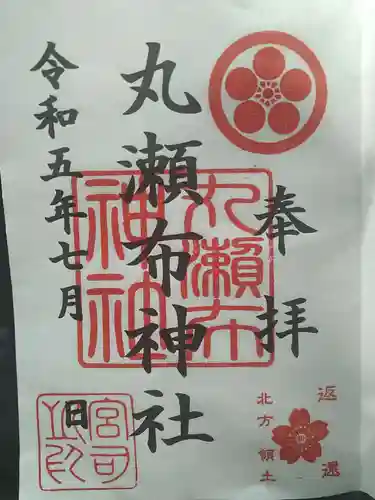 奉拝
丸瀬布神社
令和五年七月
日
丸瀬布
神社
北方領土
返還